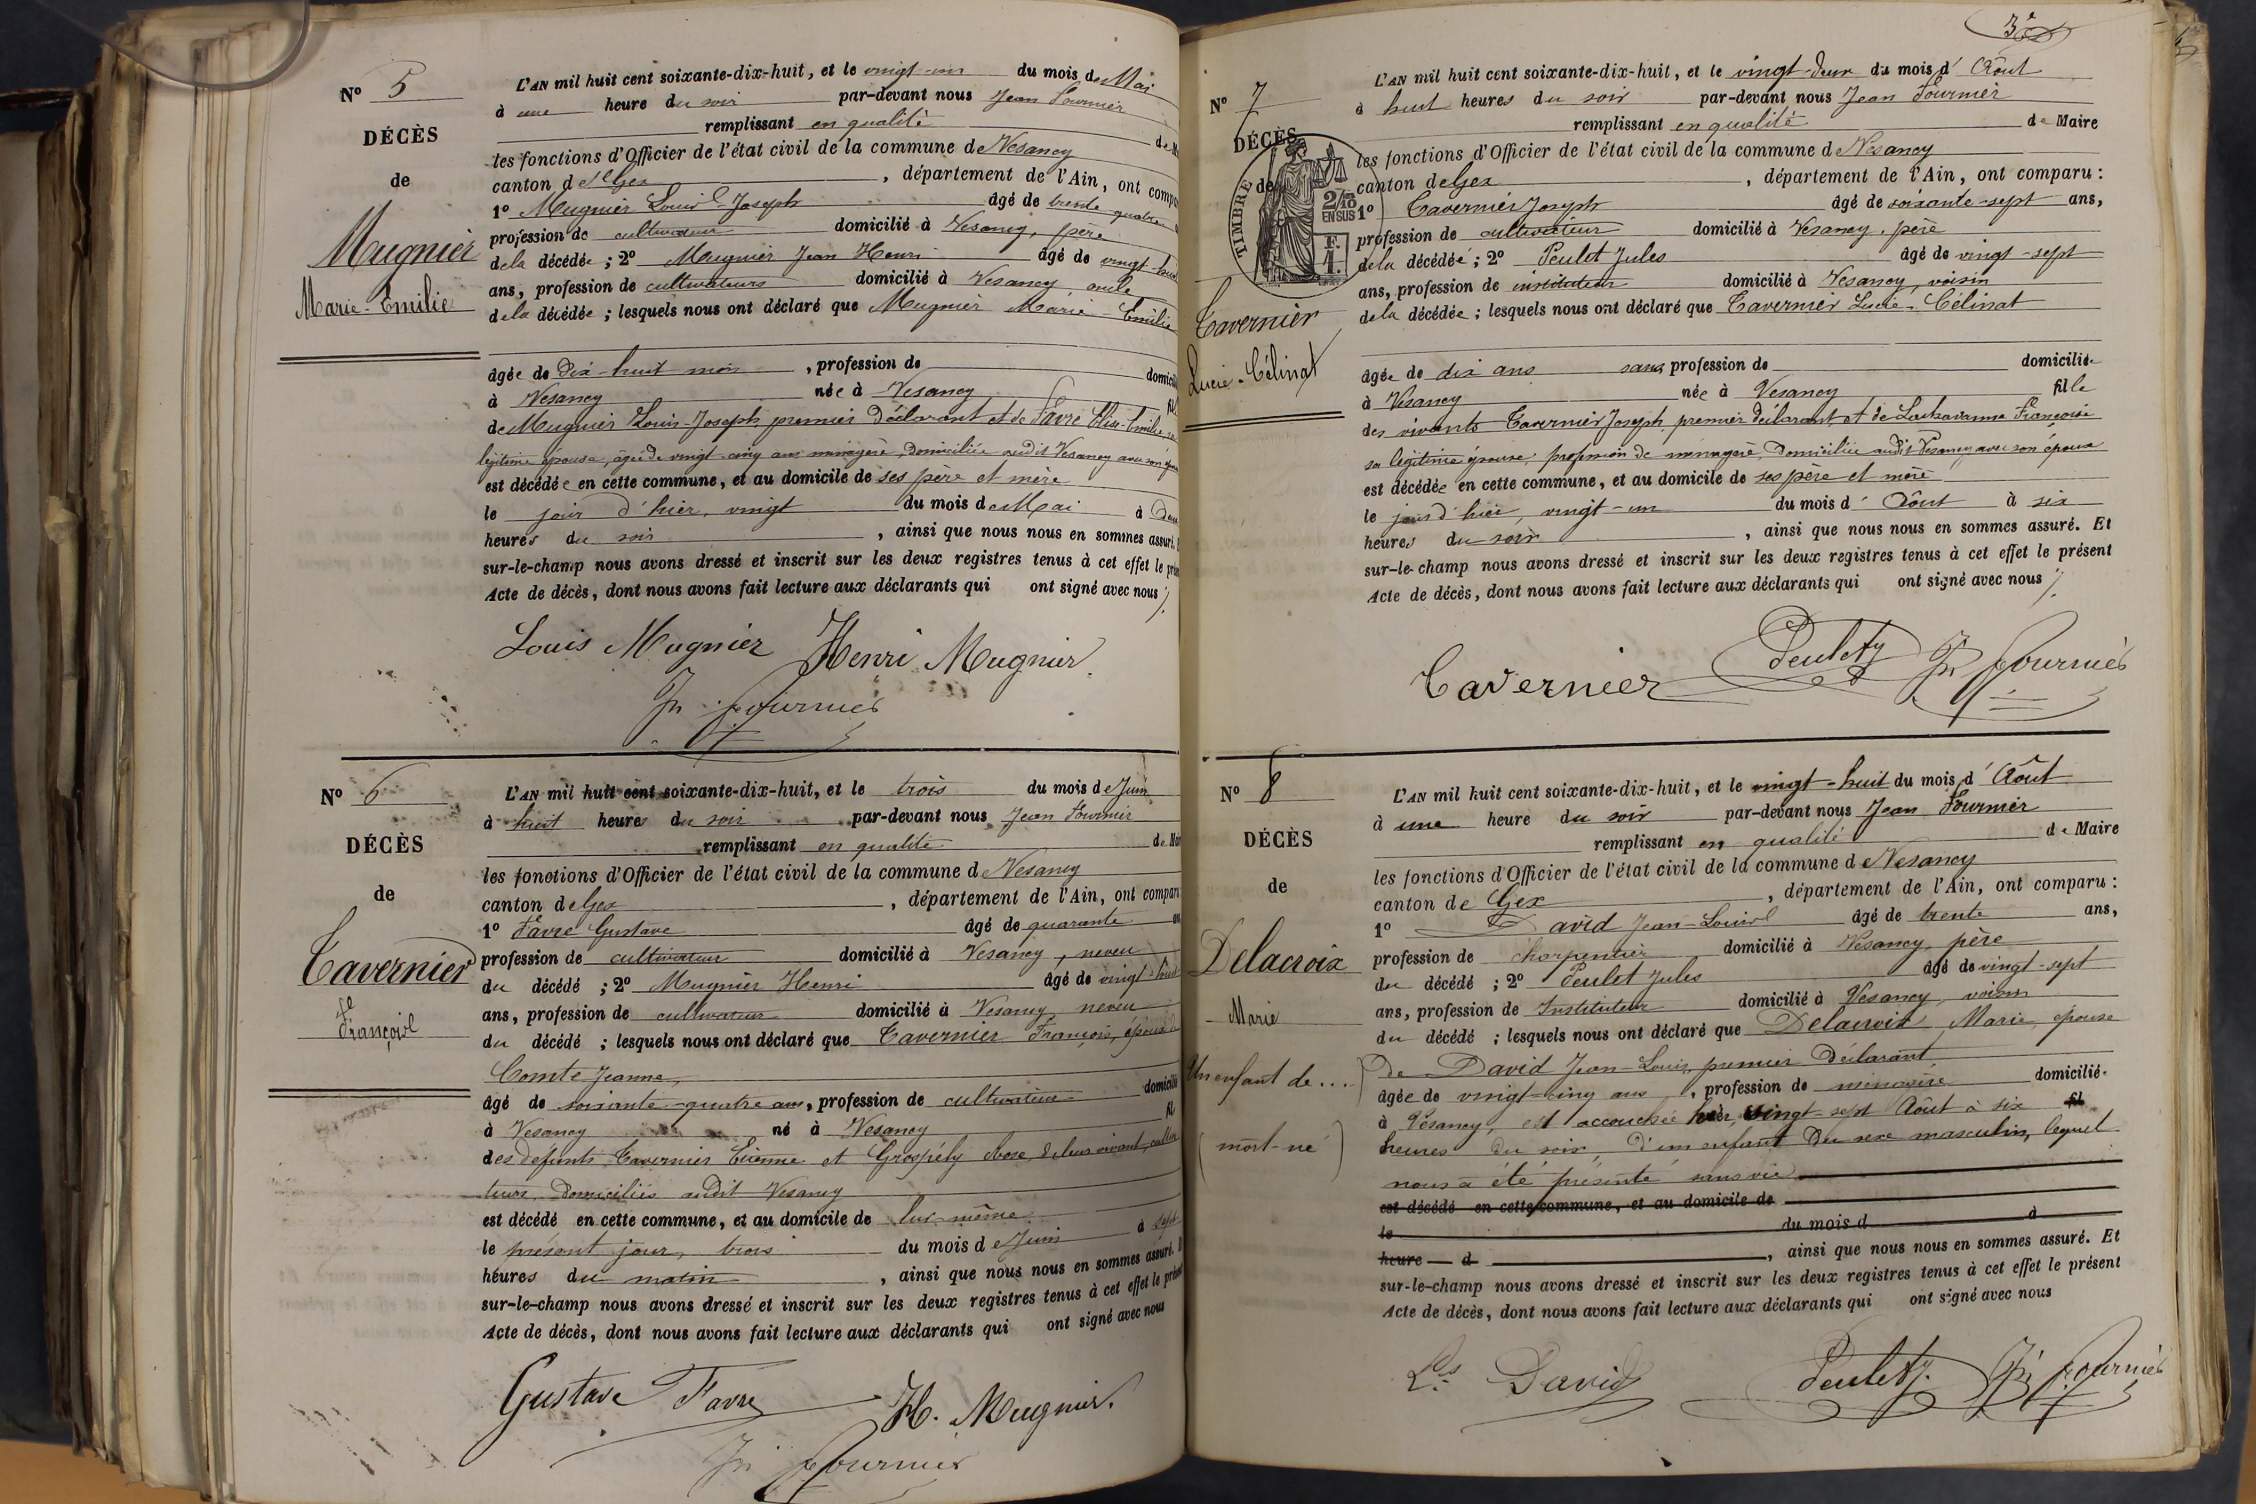 N° 5
DÉCÈS
de
Mugnier
Marie-Emilie
L'AN mil huit cent soixante-dix-huit, et le vingt-un du mois de Mai
à une heure du soir par-devant nous Jean Fournier
remplissant en qualité de M
les fonctions d'Officier de l'état civil de la commune de Vesancy
canton de Gex, département de l'Ain, ont compa
1° Mugnier Louis-Joseph âgé de trente quatre
profession de cultivateur domicilié à Vesancy, père
de la décédée; 2° Mugnier Jean Henri âgé de vingt-huit
ans, profession de cultivateurs domicilié à Vesancy oncle
de la décédée; lesquels nous ont déclaré que Mugnier Marie-Emilie
âgée de dix-huit mois, profession de domicili
à Vesancy née à Vesancy fil
de Mugnier Louis-Joseph, premier déclarant et de Favre Elise-Emilie, sa
légitime épouse, âgée de vingt-cinq ans ménagère, domiciliée audit Vesancy avec son
est décédée en cette commune, et au domicile de ses père et mère
le jour d'hier, vingt du mois de Mai à
heures du soir, ainsi que nous nous en sommes assuré.
sur-le-champ nous avons dressé et inscrit sur les deux registres tenus à cet effet le
Acte de décès, dont nous avons fait lecture aux déclarants qui ont signé avec nous
Louis Mugnier Henri Mugnier
Jn Fournier
N° 6
DÉCÈS
de
Tavernier
François
L'AN mil huit cent soixante-dix-huit, et le trois du mois de Juin
à huit heures du soir par-devant nous Jean Fournier
remplissant en qualité de Mai
les fonctions d'Officier de l'état civil de la commune de Vesancy
canton de Gex, département de l'Ain, ont compar
1° Favre Gustave âgé de quarante
profession de cultivateur domicilié à Vesancy, neveu
du décédé; 2° Mugnier Henri âgé de vingt-huit
ans, profession de cultivateur domicilié à Vesancy, neveu
du décédé; lesquels nous ont déclaré que Tavernier François, époux
Comte Jeanne,
âgé de soixante-quatre ans, profession de cultivateur domicilié
à Vesancy né à Vesancy fil
des défunts Tavernier Etienne et Grospély de leur vivant
domiciliés audit Vesancy
est décédé en cette commune, et au domicile de lui-même
le présent jour, trois du mois de Juin à sept
heures du matin, ainsi que nous nous en sommes assuré.
sur-le-champ nous avons dressé et inscrit sur les deux registres tenus à cet effet le
Acte de décès, dont nous avons fait lecture aux déclarants qui ont signé avec nous
Gustave Favre H. Mugnier.
Jn Fournier
N° 7
DÉCÈS
de
TIMBRE
2/10 EN SUS
F. 1.
Tavernier
Lucie-Célinat
L'AN mil huit cent soixante-dix-huit, et le vingt-deux du mois d'Août
à huit heures du soir par-devant nous Jean Fournier
remplissant en qualité de Maire
les fonctions d'Officier de l'état civil de la commune de Vesancy
canton de Gex, département de l'Ain, ont comparu :
1° Tavernier Joseph âgé de soixante-sept ans,
profession de cultivateur domicilié à Vesancy, père
de la décédée; 2° Peulet Jules âgé de vingt-sept
ans, profession de instituteur domicilié à Vesancy, voisin
de la décédée; lesquels nous ont déclaré que Tavernier Lucie-Célinat
âgée de dix ans sans profession de domiciliée
à Vesancy née à Vesancy fille
des vivants Tavernier Joseph, premier déclarant, et de Françoise
sa légitime épouse, profession de ménagère, domiciliée audit Vesancy avec son époux
est décédée en cette commune, et au domicile de ses père et mère
le jour d'hier, vingt-un du mois d'Août à six
heures du soir, ainsi que nous nous en sommes assuré. Et
sur-le-champ nous avons dressé et inscrit sur les deux registres tenus à cet effet le présent
Acte de décès, dont nous avons fait lecture aux déclarants qui ont signé avec nous
Tavernier Peulet J. Jn Fournier
N° 8
DÉCÈS
de
Delacroix
Marie
Un enfant de....
(mort-né)
L'AN mil huit cent soixante-dix-huit, et le vingt-huit du mois d'Août
à une heure du soir par-devant nous Jean Fournier
remplissant en qualité de Maire
les fonctions d'Officier de l'état civil de la commune de Vesancy
canton de Gex, département de l'Ain, ont comparu :
1° David Jean-Louis âgé de trente ans,
profession de charpentier domicilié à Vesancy, père
du décédé; 2° Peulet Jules âgé de vingt-sept
ans, profession de Instituteur domicilié à Vesancy, voisin
du décédé; lesquels nous ont déclaré que Delacroix Marie, épouse
de David Jean-Louis, premier déclarant
âgée de vingt-cinq ans, profession de ménagère domiciliée
à Vesancy, est accouchée hier, vingt-sept Août à six fil
heures du soir, d'un enfant du sexe masculin, lequel
nous a été présenté sans vie
est décédé en cette commune, et au domicile de
le du mois d à
heure d, ainsi que nous nous en sommes assuré. Et
sur-le-champ nous avons dressé et inscrit sur les deux registres tenus à cet effet le présent
Acte de décès, dont nous avons fait lecture aux déclarants qui ont signé avec nous
Ls David Peulet J. Jn Fournier